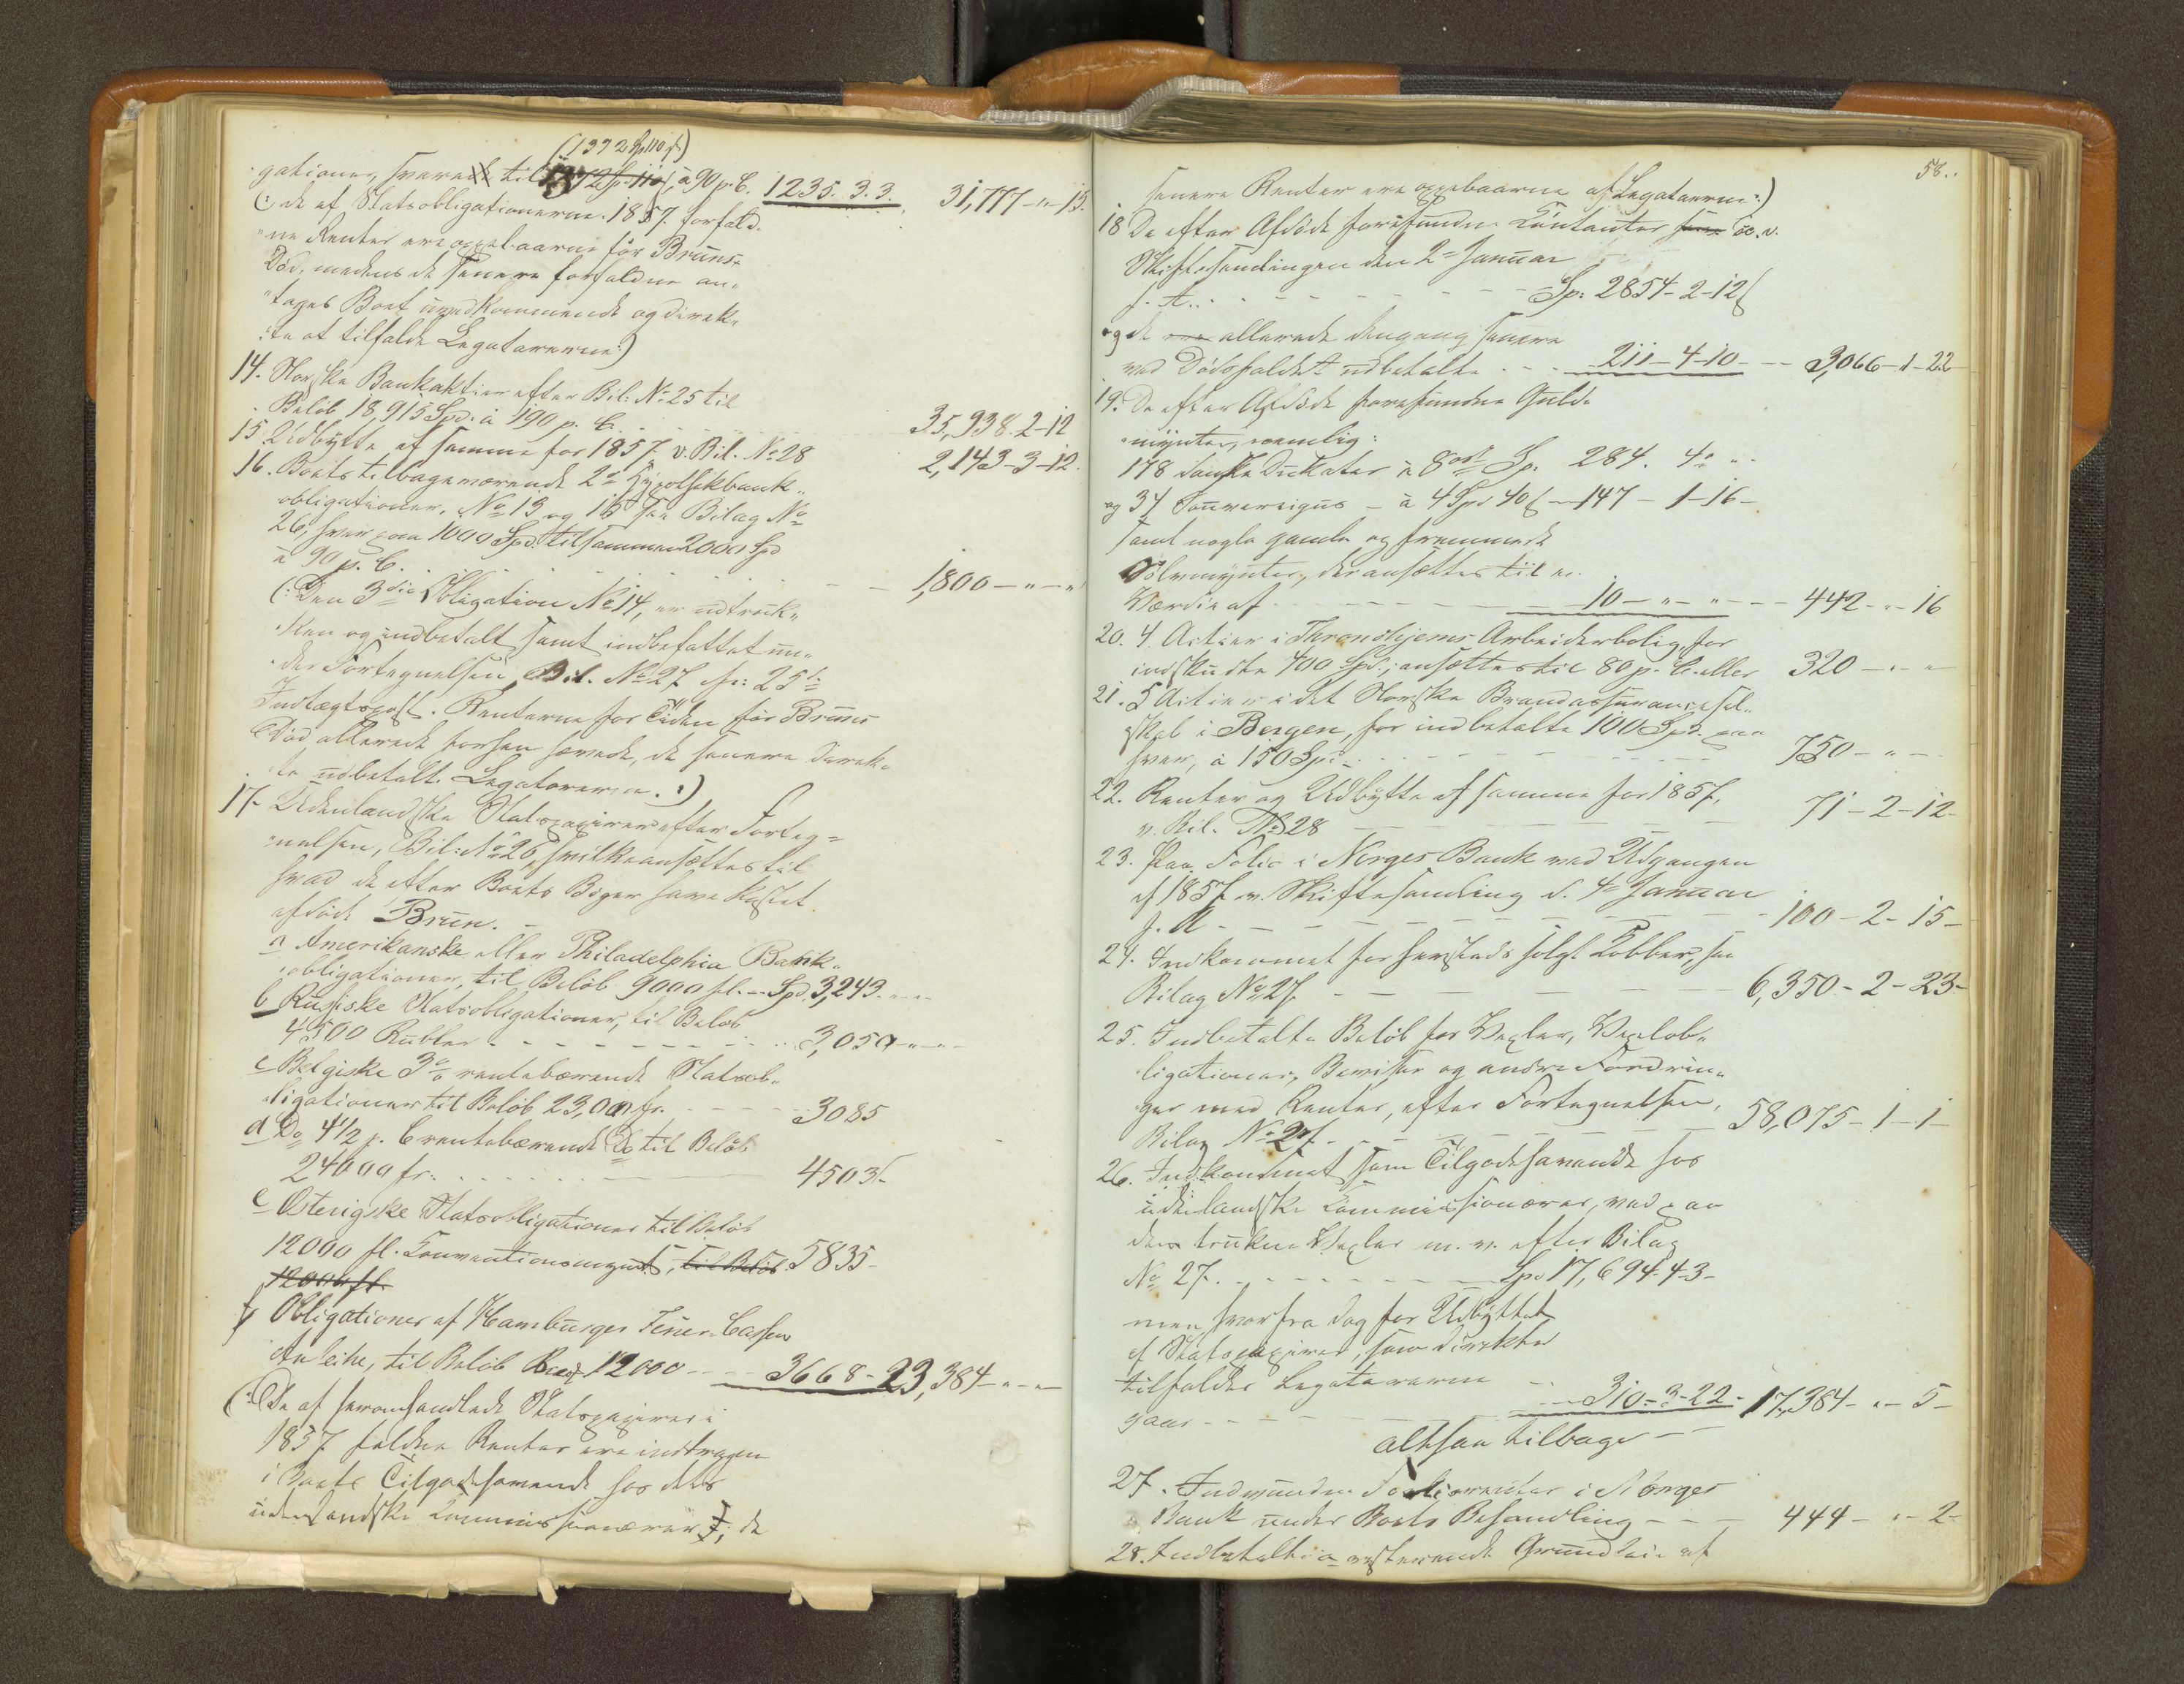 (1372 Sp 110 ſ)
gationer, svarende til 1372 Sp. 110 ſ, à 90 p. C. 1235. 3. 3. 31,777 - " - 15.
(: de af Statsobligationerne 1857 forfald-
ne Renter ere oppebaarne før Bruns
Død, medens de senere forfaldne an-
tages Boet uvedkommende og direk-
te at tilfalde Legatarerne :)
14. Norske Bankaktier efter Bil. No 25 til
Beløb 18,915 Spd. à 190 p. C. 35,938. 2 - 12
15 Udbytte af samme for 1857 v. Bil. No 28 2,143 - 3 - 12.
16. Boets tilbageværende 2de Hypothekbank-
obligationer, No 13 og 15 see Bilag No
26, hver paa 1000 Spd. tilsammen 2000 Spd
à 90 p. C. 1,800 - " - "
(: Den 3die Obligation No 14, er udtruk-
ken og indbetalt samt indbefattet un-
der Fortegnelsen Bil. No 27 s: 25de
Indtægtspost. Renterne for Tiden før Bruns
Død allerede forhen hævede, de senere direk-
te udbetalt Legatarerne. :)
17. Udenlandske Statspapirer efter Forteg-
nelsen, Bil: No 26, hvilke ansættes til
hvad de efter Boets Bøger have kostet
afdøde Brun. -
a Amerikanske eller Philadelphia Bank-
obligationer, til Beløb 9000 fl. - Spd 3,243 - " -
b Russiske Statsobligationer, til Beløb
4500 Rubler 3,050 - " -
c Belgiske 3% rentebærende Statsob-
ligationer til Beløb 23,000 fr. 3085
d Do 4 1/2 p. C rentebærende do til Beløb
24000 fr. 4503 -
e Østerigske Statsobligationer til Beløb
12000 fl. Conventionsmynt, til Beløb 5835 -
12000 fl.
f Obligationer af Hamburger Feuer-Cassen
Anleihe, til Beløb Banco 12000 3668 - 23,384 - " -
(: De af heromhandlede Statspapirer i
1857 faldne Renter ere inddragne
i Boets Tilgodehavende hos dets
udenlandske Kommissionærer, de
58.
senere Renter ere oppebaarne af Legatarerne :)
18 De efter Afdøde forefundne Contanter v.
Skiftesamlingen den 2de Januar
f. A. Sp: 2854 - 2 - 12 ſ
og de allerede dengang senere
ved Dødsfaldet udbetalte 211 - 4 - 10 - 3,066 - 1 - 22
19. De efter Afdøde forefundne Guld-
mynter, nemlig:
178 danske Dukater à 8 ort Sp. 284. 4 "
og 34 Souvereigns - à 4 Spd 40 ſ - 147 - 1 - 16 -
samt nogle gamle og fremmede
Sølvmynter, der ansættes til en
Værdie af 10 - " - " - 442 - " - 16
20. 4 Actier i Throndhjems Arbeiderbolig for
indskudte 400 Spd., ansættes til 80 p. C. eller 320 - " - "
21. 5 Actier i det Norske Brandassuranceesel-
skab i Bergen, for indbetalte 100 Spd. paa
hver, à 150 Spd. 750 - " -
22. Renter og Udbytte af samme for 1857,
v. Bil. No 28 71 - 2 - 12 -
23. Paa Folio i Norges Bank ved Udgangen
af 1857 v. Skiftesamling d. 4de Januar
f. A. 100 - 2 - 15 -
24. Indkommet for solgt Kobber, see
Bilag No 27. 6,350 - 2 - 23 -
25. Indbetalte Beløb for Vexler, Vexelob-
ligationer, Beviser og andre Fordrin-
ger med Renter, efter Fortegnelsen,
Bilag No 27. 58,075 - 1 - 1 -
26. Indkommet som Tilgodehavende hos
udenlandske Commissionærer, ved paa
dem trukne Vexler m. v. efter Bilag
No 27. Spd 17,694 - 4 - 3 -
men herfra dog for Udbyttet
af Statspapirer, som direkte
tilfalder Legatarerne
gaar 310 - 3 - 22 - 17,384 - " - 5 -
altsaa tilbage -
27. Indvundne Foliorenter i Norges
Bank under Boets Behandling 444 - " - 2 -
28. Indbetalte resterende Grundleie af